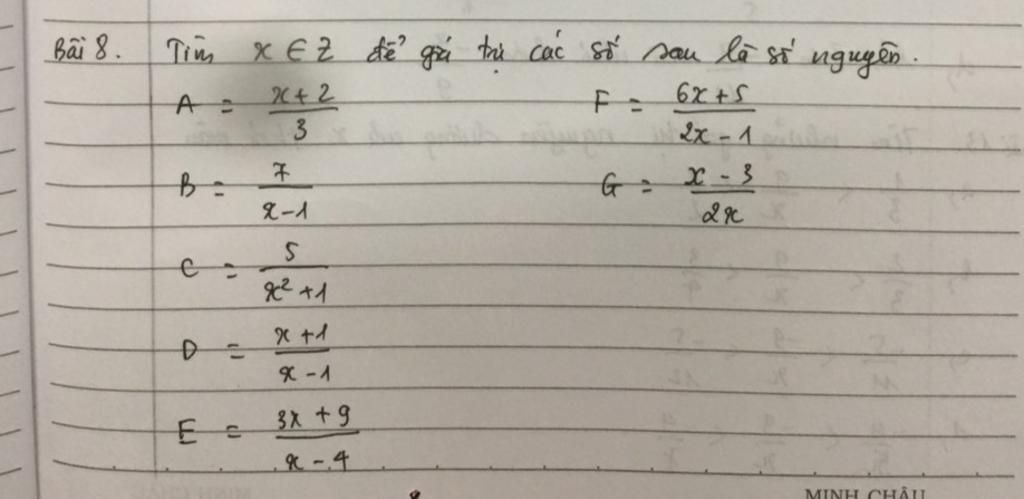 Bài 8. Tìm x ∈ Z để giá trị các số sau là số nguyên.
A = (x + 2)/3
F = (6x + 5)/(2x - 1)
B = 7/(x - 1)
G = (x - 3)/(2x)
C = 5/(x² + 1)
D = (x + 1)/(x - 1)
E = (3x + 9)/(x - 4)
MINH CHÂU